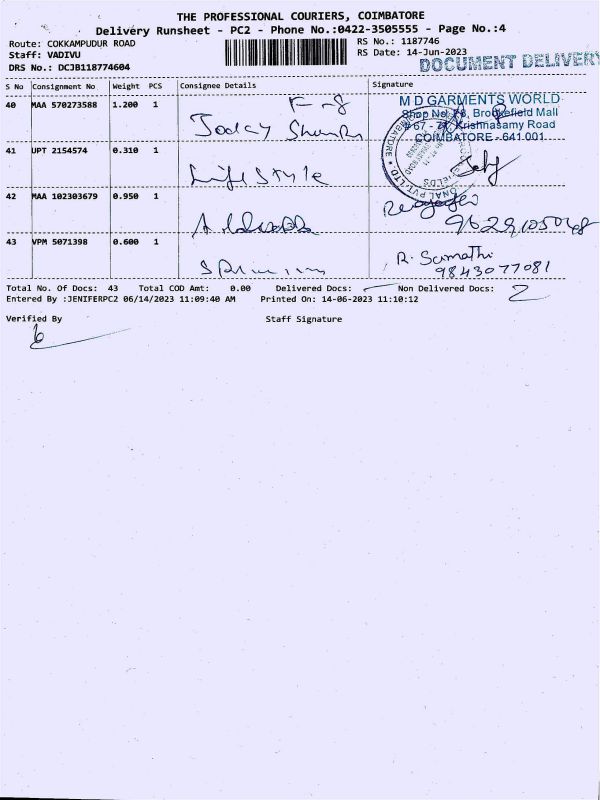 THE PROFESSIONAL COURIERS, COIMBATORE
Delivery Runsheet - PC2 - Phone No.:0422-3505555 - Page No.:4
Route: COKKAMPUDUR ROAD
Staff: VADIVU
DRS No.: DCJB118774604
RS No.: 1187746
RS Date: 14-Jun-2023
DOCUMENT DELIVERY
S No Consignment No Weight PCS Consignee Details Signature
40 MAA 570273588 1.200 1
F-8
M D GARMENTS WORLD
Shop No. Brookefield Mall
Krishnasamy Road
COIMBATORE - 641 001
41 UPT 2154574 0.310 1 Life Style
42 MAA 102303679 0.950 1
43 VPM 5071398 0.600 1
R. Sumathi
9843077081
Total No. Of Docs: 43 Total COD Amt: 0.00 Delivered Docs: Non Delivered Docs: 2
Entered By :JENIFERPC2 06/14/2023 11:09:40 AM Printed On: 14-06-2023 11:10:12
Verified By Staff Signature